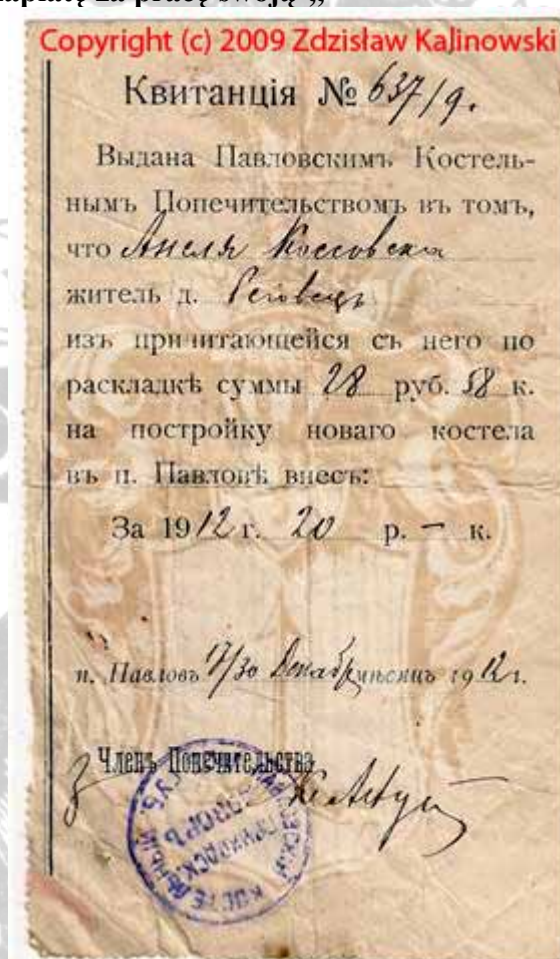 zapłatę za pracę swoją „
Copyright (c) 2009 Zdzisław Kalinowski
Квитанція № 637/9.
Выдана Павловскимъ Костель-
нымъ Попечительствомъ въ томъ,
что Анеля Коссовская
житель д.
изъ причитающейся съ него по
раскладкѣ суммы 28 руб. 58 к.
на постройку новаго костела
въ п. Павловѣ внесъ:
За 1912 г. 20 р. — к.
п. Павловъ 17/30 Декабр мѣсяцъ 1912 г.
Членъ Попечительства